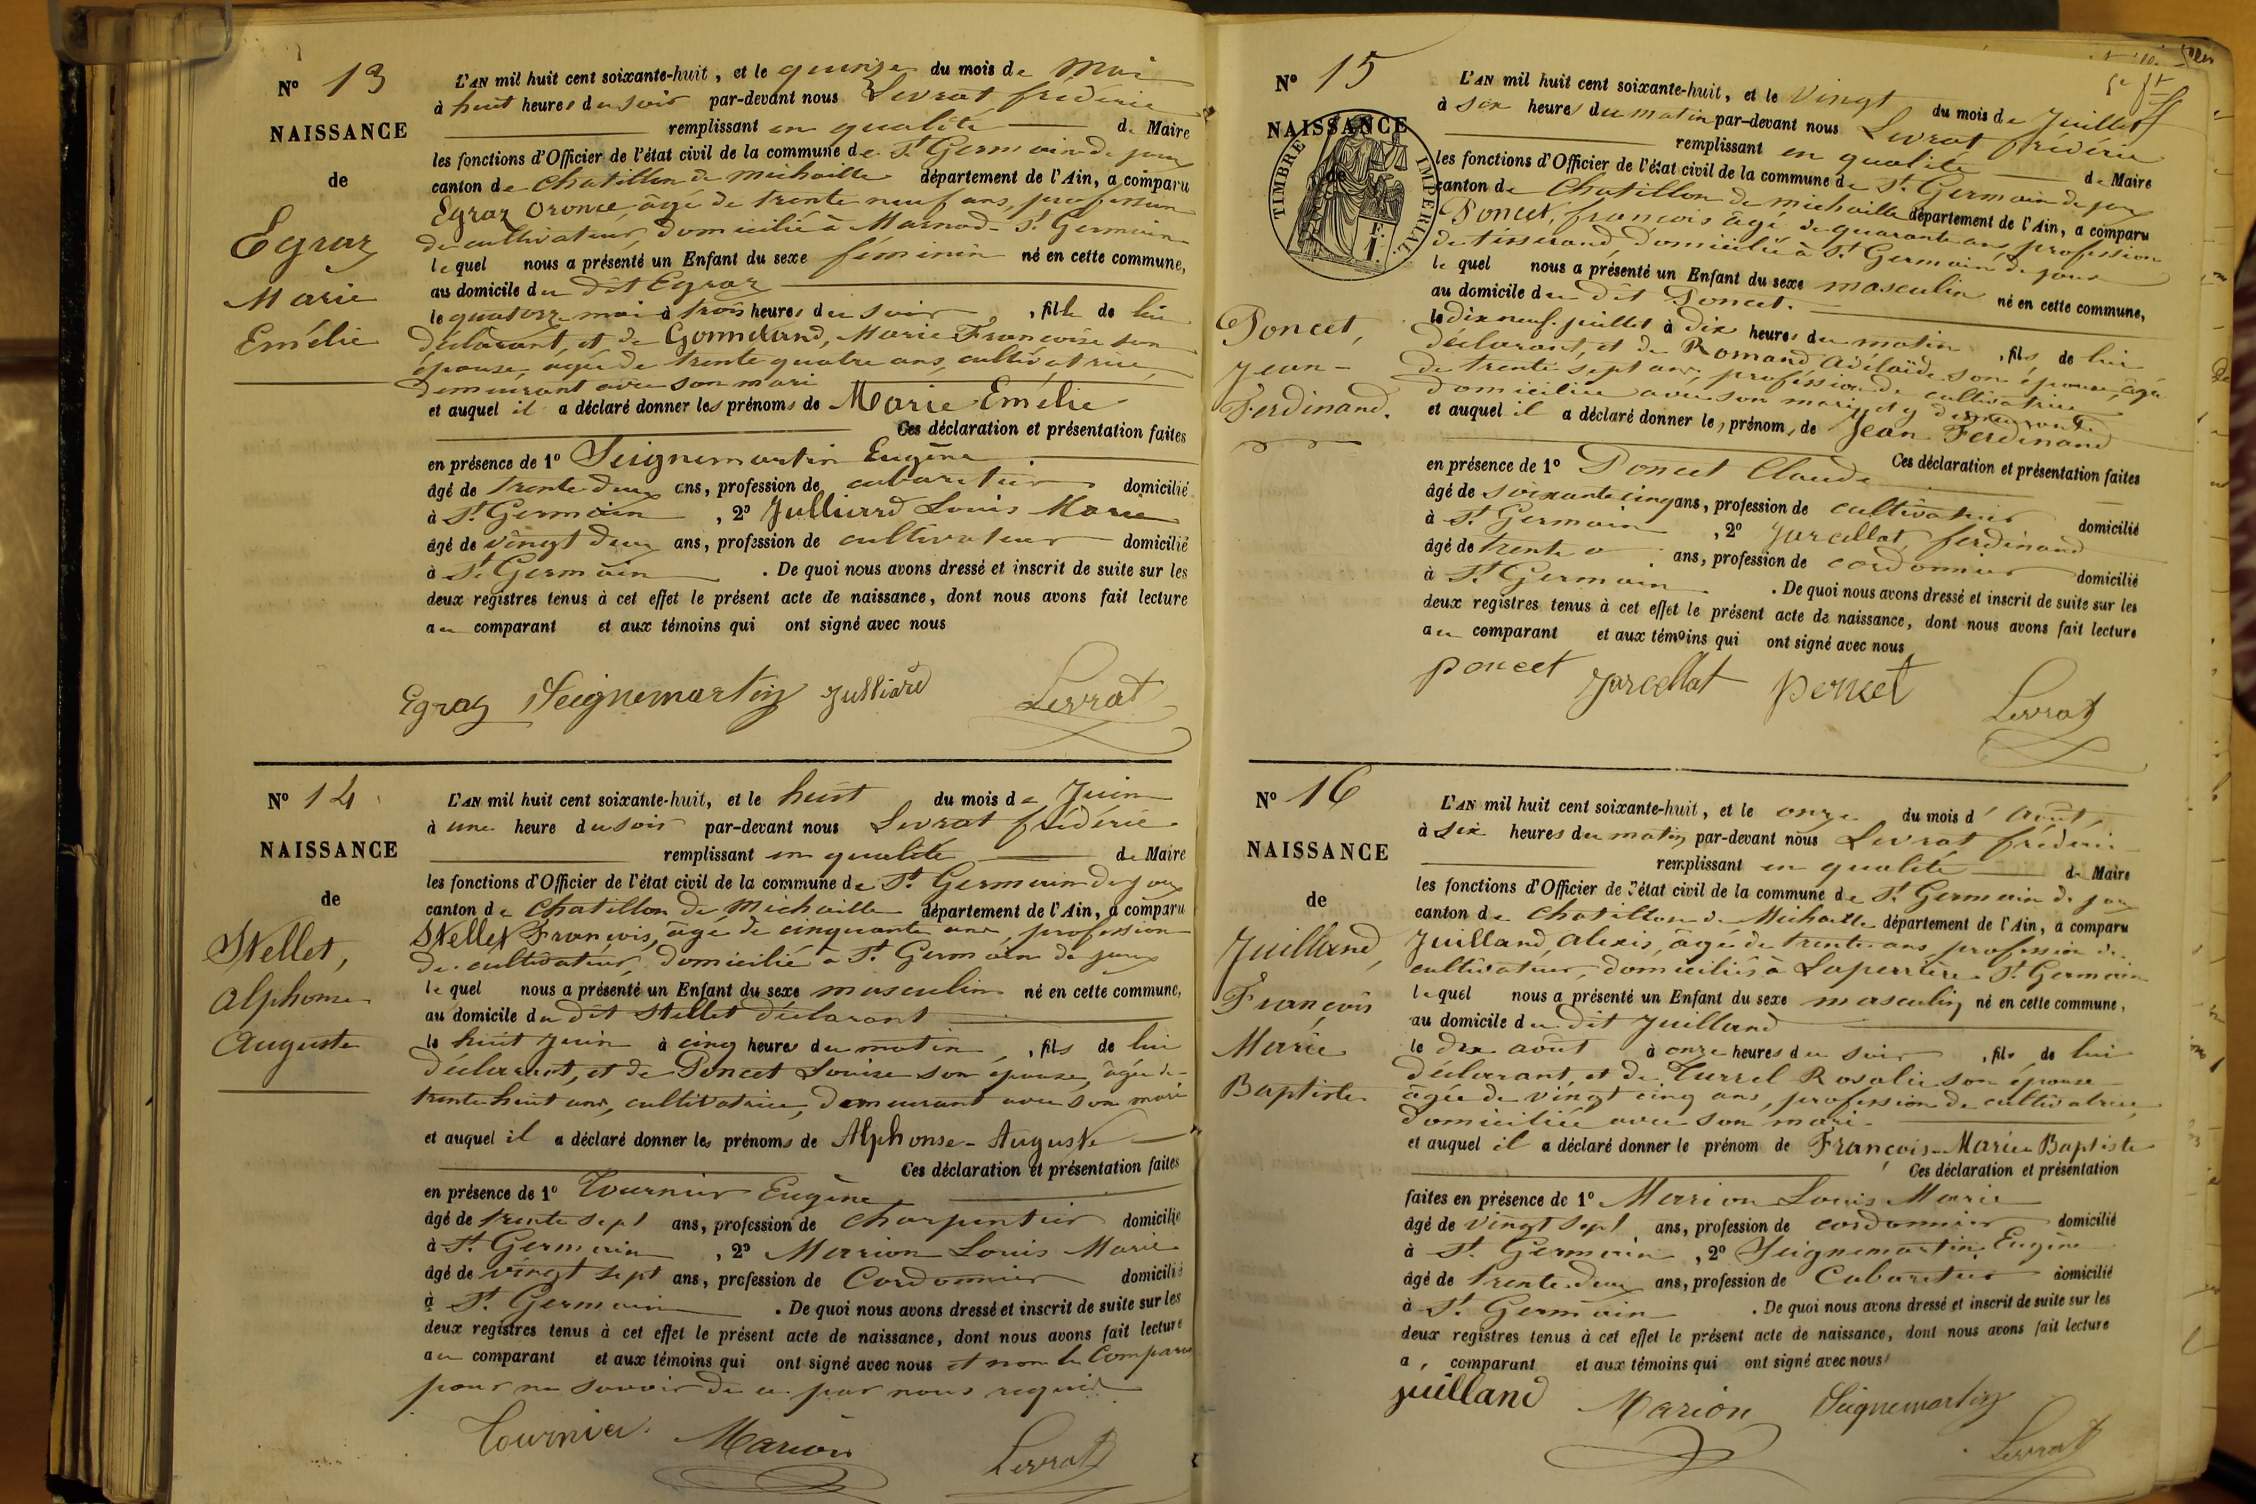 N° 13
NAISSANCE
de
Egraz
Marie
Emélie
L'AN mil huit cent soixante-huit, et le quinze du mois de Mai
à huit heures du soir par-devant nous Levrat frédéric
remplissant en qualité de Maire
les fonctions d'Officier de l'état civil de la commune de St Germain de joux
canton de Chatillon de michaille département de l'Ain, a comparu
Egraz Oronce, âgé de trente neuf ans, profession
de cultivateur, domicilié à Marnod - St Germain
lequel nous a présenté un Enfant du sexe féminin né en cette commune,
au domicile du dit Egraz
le quatorze mai à trois heures du soir, fille de lui
déclarant, et de Gonnerand, Marie Françoise son
épouse, agée de trente quatre ans, cultivatrice,
demeurant avec son mari
et auquel il a déclaré donner les prénoms de Marie Emélie
Ces déclaration et présentation faites
en présence de 1° Seignemartin Eugène
âgé de trente deux ans, profession de cabaretier domicilié
à St Germain, 2° Julliard Louis Marie
âgé de vingt deux ans, profession de cultivateur domicilié
à St Germain. De quoi nous avons dressé et inscrit de suite sur les
deux registres tenus à cet effet le présent acte de naissance, dont nous avons fait lecture
au comparant et aux témoins qui ont signé avec nous
Egraz Seignemartin Julliard Levrat
N° 14
NAISSANCE
de
Stellet,
Alphonse
Auguste
L'AN mil huit cent soixante-huit, et le huit du mois de Juin
à une heure du soir par-devant nous Levrat frédéric
remplissant en qualité de Maire
les fonctions d'Officier de l'état civil de la commune de St Germain de joux
canton de Chatillon de Michaille département de l'Ain, a comparu
Stellet François, âgé de cinquante ans, profession
de cultivateur, domicilié à St Germain de joux
lequel nous a présenté un Enfant du sexe masculin né en cette commune,
au domicile du dit Stellet déclarant
le huit Juin à cinq heures du matin, fils de lui
déclarant, et de Poncet Louise son épouse, âgée de
trente huit ans, cultivatrice, demeurant avec son mari
et auquel il a déclaré donner les prénoms de Alphonse-Auguste
Ces déclaration et présentation faites
en présence de 1° Tournier Eugène,
âgé de trente sept ans, profession de Charpentier domicilié
à St Germain, 2° Marion Louis Marie
âgé de vingt sept ans, profession de Cordonnier domicilié
à St Germain. De quoi nous avons dressé et inscrit de suite sur les
deux registres tenus à cet effet le présent acte de naissance, dont nous avons fait lecture
au comparant et aux témoins qui ont signé avec nous et non le Comparant
pour ne savoir de ce par nous requis
Tournier Marion Levrat
N° 15
NAISSANCE
TIMBRE IMPÉRIAL
1 F.
Poncet,
Jean-
Ferdinand.
L'AN mil huit cent soixante-huit, et le Vingt du mois de Juillet
à six heures du matin par-devant nous Levrat frédéric
remplissant en qualité de Maire
les fonctions d'Officier de l'état civil de la commune de St Germain de joux
canton de Chatillon de michaille département de l'Ain, a comparu
Poncet, françois âgé de quarante ans, profession
de tisserand, domicilié à St Germain de joux
lequel nous a présenté un Enfant du sexe masculin né en cette commune,
au domicile du dit Poncet.
le dix neuf juillet à dix heures du matin, fils de lui
déclarant, et de Romand Adélaïde son épouse, âgée
de trente sept ans, profession de cultivatrice
domiciliée avec son mari, et y demeurante
et auquel il a déclaré donner les prénoms de Jean Ferdinand
Ces déclaration et présentation faites
en présence de 1° Poncet Claude
âgé de soixante cinq ans, profession de cultivateur domicilié
à St Germain, 2° Jarcellat ferdinand
âgé de trente ans, profession de cordonnier domicilié
à St Germain. De quoi nous avons dressé et inscrit de suite sur les
deux registres tenus à cet effet le présent acte de naissance, dont nous avons fait lecture
au comparant et aux témoins qui ont signé avec nous
poncet Jarcellat poncet Levrat
N° 16
NAISSANCE
de
Juilland,
François
Marie
Baptiste
L'AN mil huit cent soixante-huit, et le onze du mois d'Août,
à six heures du matin par-devant nous Levrat frédéric
remplissant en qualité de Maire
les fonctions d'Officier de l'état civil de la commune de St Germain de joux
canton de Chatillon de Michaille département de l'Ain, a comparu
Juilland, Alexis, âgé de trente ans, profession de
cultivateur, domicilié à Laperrière - St Germain
lequel nous a présenté un Enfant du sexe masculin né en cette commune,
au domicile du dit Juilland
le dix août à onze heures du soir, fils de lui
déclarant, et de Turrel Rosalie son épouse
âgée de vingt cinq ans, profession de cultivatrice,
domiciliée avec son mari.
et auquel il a déclaré donner le prénom de François-Marie Baptiste
Ces déclaration et présentation
faites en présence de 1° Marion Louis Marie
âgé de vingt sept ans, profession de cordonnier domicilié
à St Germain, 2° Seignemartin Eugène
âgé de trente deux ans, profession de Cabaretier domicilié
à St Germain. De quoi nous avons dressé et inscrit de suite sur les
deux registres tenus à cet effet le présent acte de naissance, dont nous avons fait lecture
a comparant et aux témoins qui ont signé avec nous
juilland Marion Seignemartin Levrat